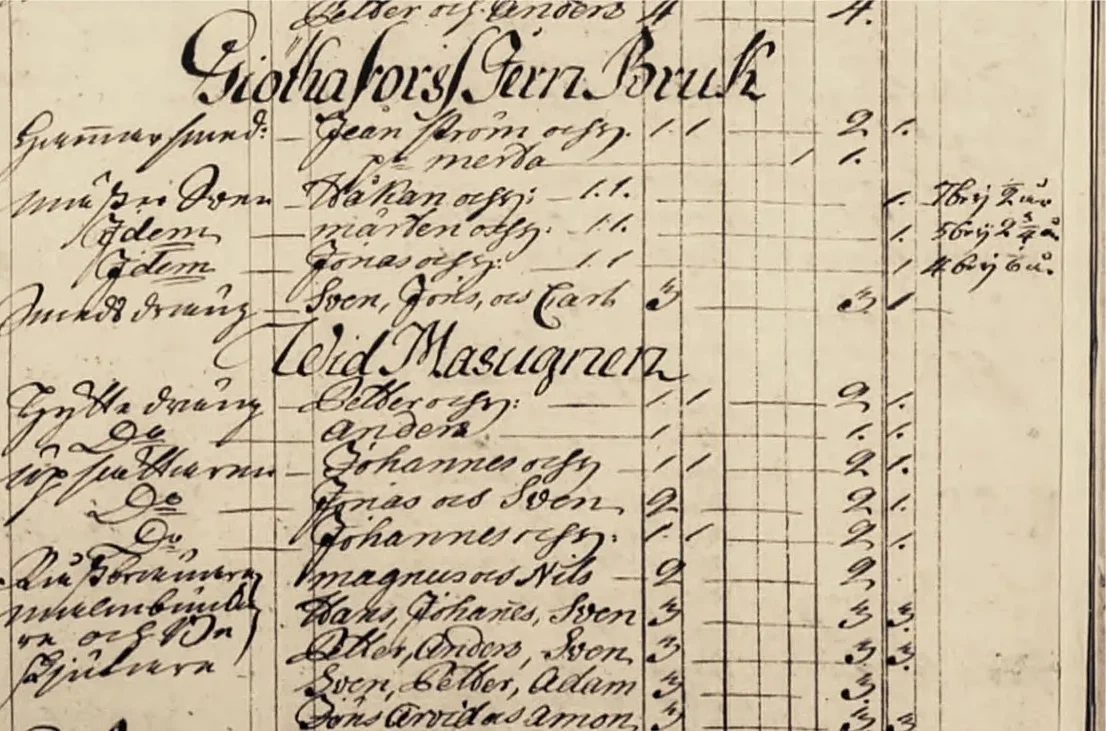 Petter och Anders 4 4.
Giöthafors Jern Bruk
Hammarsmed: Jean ström och hy. 1. 1 2 1.
p: merta 1 1.
Mäster Sven Håkan och hy: 1. 1. 1.
Idem mårten och hy: 1. 1. 1.
Idem Jonas och hy: 1. 1 1
Smeds dräng Sven, Jöns, och Carl 3 3 1
Wid Masugnen
Hytte dräng Petter och hy: 1. 1 2 1.
Do Anders 1. 1. 1.
upsättaren Johannes och hy 1 1 2 1.
Do Jonas och Sven 2 2 1.
Do Johannes och hy: 1. 1 2 1.
magnus och Nils 2 2
Hans, Johanes, Sven 3 3 3.
och
Petter, Anders, Sven 3 3 3.
Sven, Petter, Adam 3 3
Jöns Arvid och Amon 3 3 3